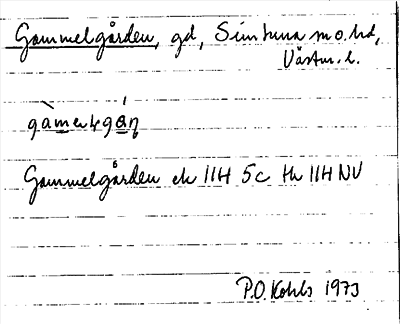 Gammelgården, gd, Simtuna sn o. hd,
Västm. l.
Gammelgården ek 11H 5c th 11H NV
P.O. Kohls 1973